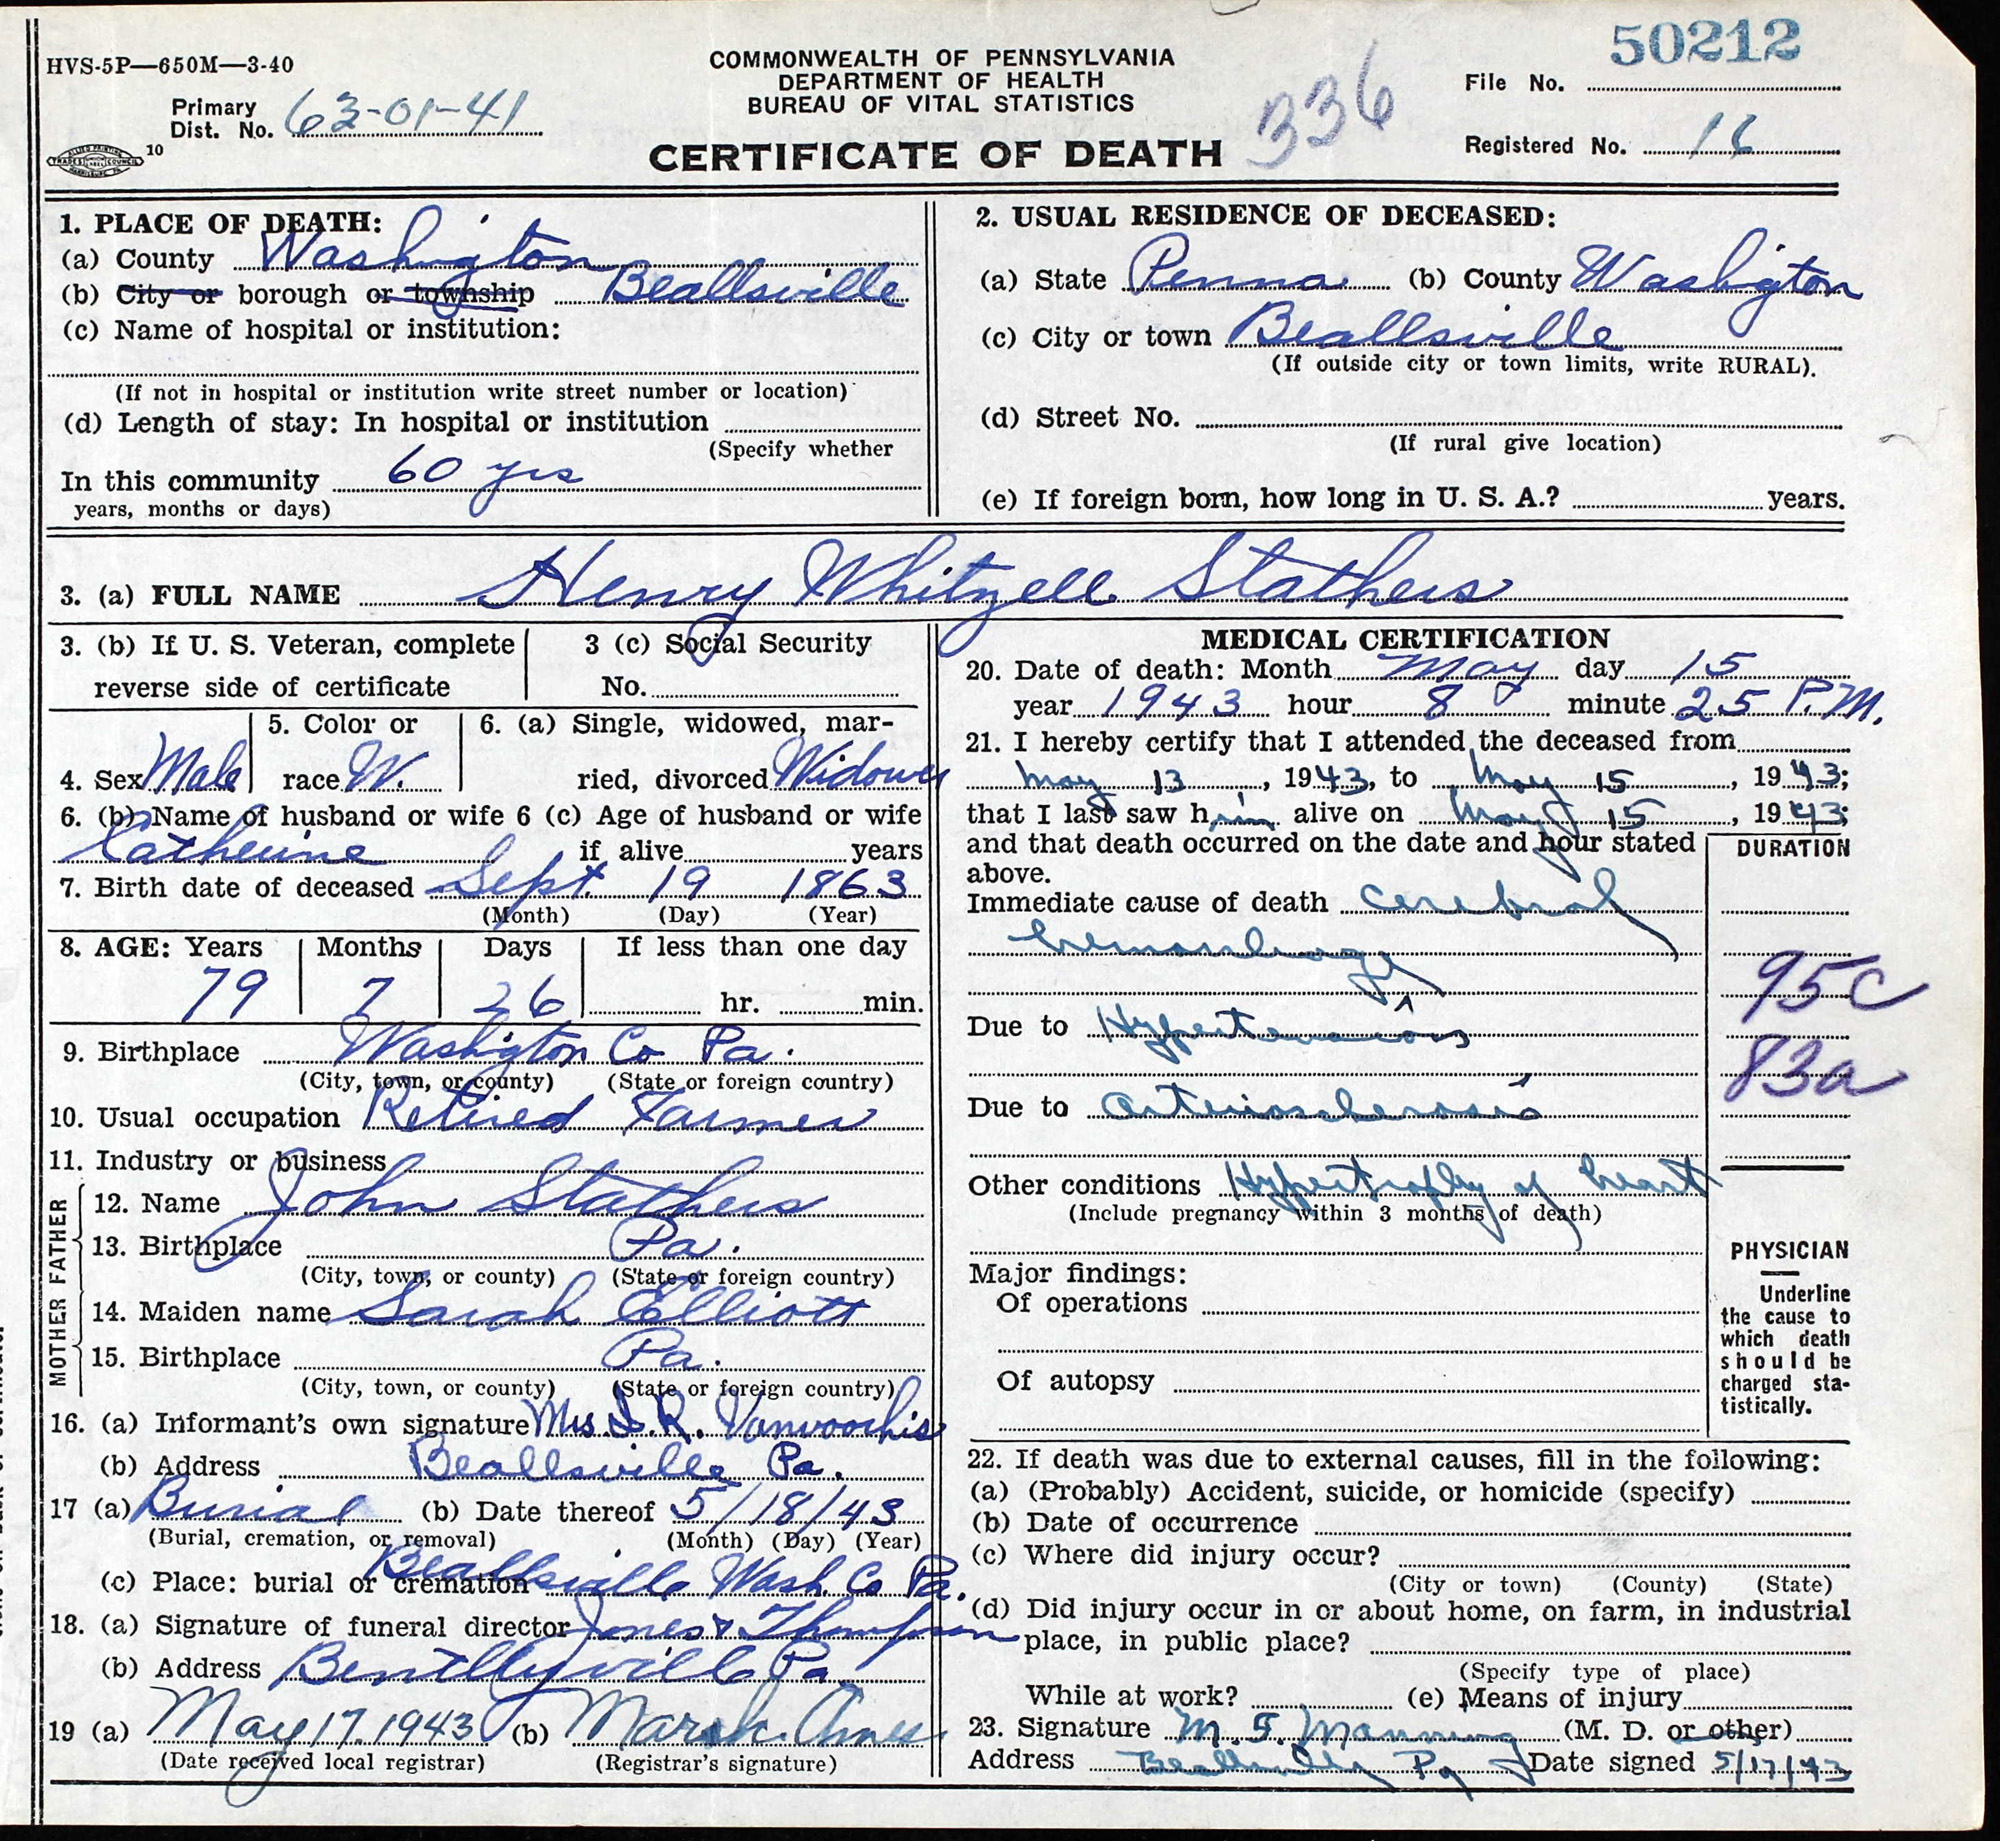 HVS-5P—650M—3-40
COMMONWEALTH OF PENNSYLVANIA
DEPARTMENT OF HEALTH
BUREAU OF VITAL STATISTICS
CERTIFICATE OF DEATH
336
50212
File No.
Primary
Dist. No. 63-01-41
Registered No. 16
ALLIED PRINTING
TRADES UNION LABEL COUNCIL
10
1. PLACE OF DEATH:
(a) County Washington
(b) City or borough or township Beallsville
(c) Name of hospital or institution:
(If not in hospital or institution write street number or location)
(d) Length of stay: In hospital or institution
(Specify whether
In this community 60 yrs
years, months or days)
2. USUAL RESIDENCE OF DECEASED:
(a) State Penna (b) County Washigton
(c) City or town Beallsville
(If outside city or town limits, write RURAL).
(d) Street No.
(If rural give location)
(e) If foreign born, how long in U. S. A.? years.
3. (a) FULL NAME Henry Whitzell Stathers
3. (b) If U. S. Veteran, complete
reverse side of certificate
3 (c) Social Security
No.
4. Sex Male
5. Color or
race W.
6. (a) Single, widowed, mar-
ried, divorced Widower
6. (b) Name of husband or wife 6 (c) Age of husband or wife
Catherine if alive years
7. Birth date of deceased Sept 19 1863
(Month) (Day) (Year)
8. AGE: Years Months Days If less than one day
79 7 26 hr. min.
9. Birthplace Washigton Co Pa.
(City, town, or county) (State or foreign country)
10. Usual occupation Retired Farmer
11. Industry or business
FATHER
12. Name John Stathers
13. Birthplace Pa.
(City, town, or county) (State or foreign country)
MOTHER
14. Maiden name Sarah Elliott
15. Birthplace Pa.
(City, town, or county) (State or foreign country)
16. (a) Informant's own signature Mrs. R. Vanvoorhis
(b) Address Beallsville Pa.
17 (a) Burial (b) Date thereof 5/18/43
(Burial, cremation, or removal) (Month) (Day) (Year)
(c) Place: burial or cremation Beallsville Wash. Co Pa.
18. (a) Signature of funeral director Jones & Thompson
(b) Address Bentlleyville Pa.
19 (a) May 17. 1943 (b)
(Date received local registrar) (Registrar's signature)
MEDICAL CERTIFICATION
20. Date of death: Month May day 15
year 1943 hour 8 minute 25 P.M.
21. I hereby certify that I attended the deceased from
May 13, 1943, to May 15, 1943;
that I last saw him alive on May 15, 1943;
and that death occurred on the date and hour stated
above.
DURATION
Immediate cause of death cerebral
hemorrhage
95c
Due to Hypertension
83a
Due to arteriosclerosis
Other conditions Hypertrophy of heart
(Include pregnancy within 3 months of death)
Major findings:
Of operations
Of autopsy
PHYSICIAN
Underline
the cause to
which death
should be
charged sta-
tistically.
22. If death was due to external causes, fill in the following:
(a) (Probably) Accident, suicide, or homicide (specify)
(b) Date of occurrence
(c) Where did injury occur?
(City or town) (County) (State)
(d) Did injury occur in or about home, on farm, in industrial
place, in public place?
(Specify type of place)
While at work? (e) Means of injury
23. Signature M. F. Manning (M. D. or other)
Address Beallsville Pa Date signed 5/17/43